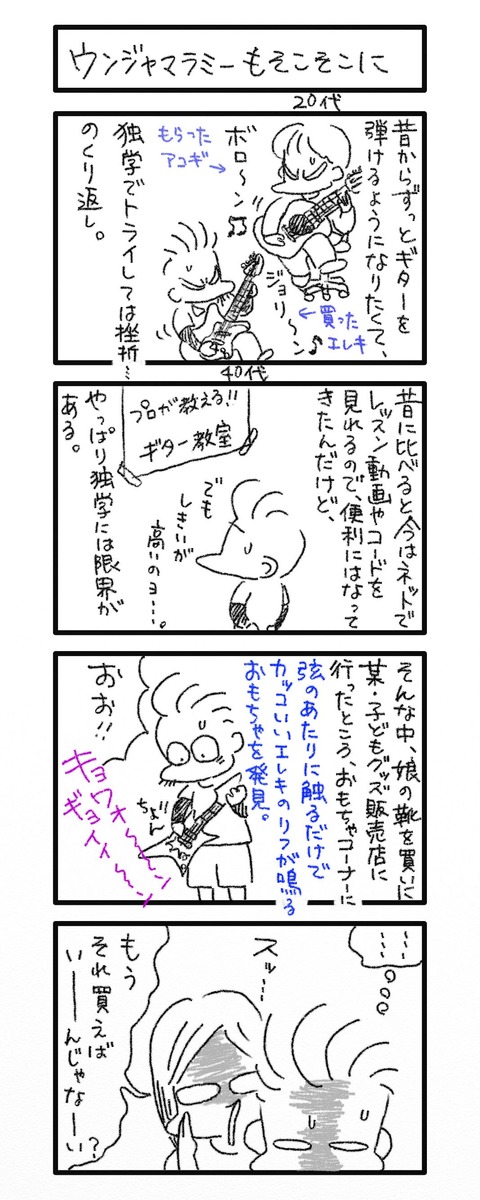 ウンジャマラミーもそこそこに
20代
昔からずっとギターを
弾けるようになりたくて、
ボロ〜ン♫
もらった
アコギ→
ジョリ〜ン♪
←買った
エレキ
独学でトライしては挫折…
のくり返し。
40代
昔に比べると今はネットで
レッスン動画やコードを
見れるので、便利にはなって
きたんだけど、
プロが教える!!
ギター教室
でも
しきいが
高いのヨ…。
やっぱり独学には限界が
ある。
そんな中、娘の靴を買いに
某・子どもグッズ販売店に
行ったところ、おもちゃコーナーに
弦のあたりに触るだけで
カッコいいエレキのリフが鳴る
おもちゃを発見。
ちょん
おお!!
キョワオ〜〜ン
ギョイィ〜〜ン
スッ…
もう
それ買えば
いーーんじゃなーい?